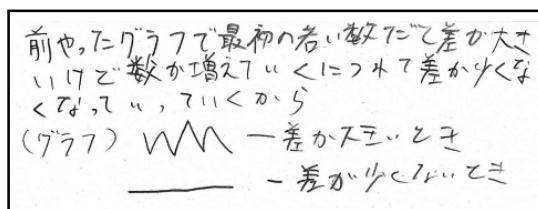 前やったグラフで最初の若い数だと差が大き
いけど数が増えていくにつれて差が少くな
くなってい、ていくから
(グラフ) ー差が大きいとき
ー差が少くないとき